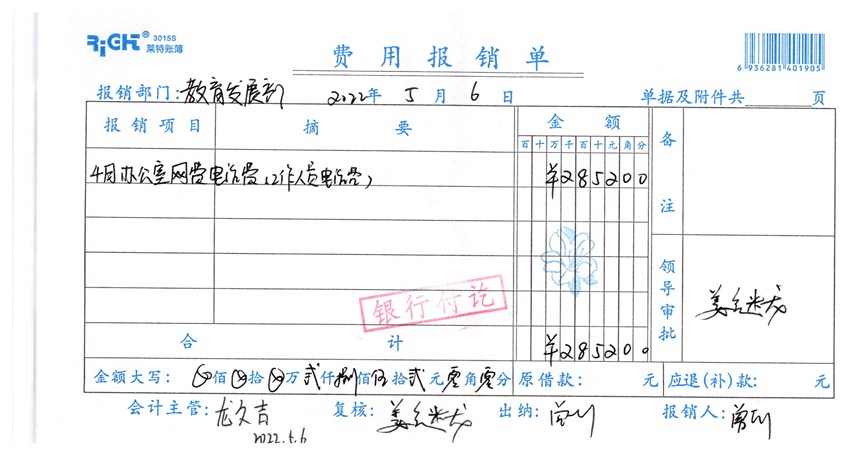 RiGHT® 3015S
莱特账簿
费用报销单
6 936281 401905
报销部门:教育发展部 2022年 5月 6日 单据及附件共 页
报销项目 摘要 金额 备注
百十万千百十元角分
4月办公室网费电话费(工作人员电话费) ¥285200
银行付讫
领导审批
合计 ¥285200
金额大写: 佰 拾 万 贰仟捌佰伍拾贰元零角零分 原借款: 元 应退(补)款: 元
会计主管:龙久吉 复核: 出纳: 报销人:
2022.5.6